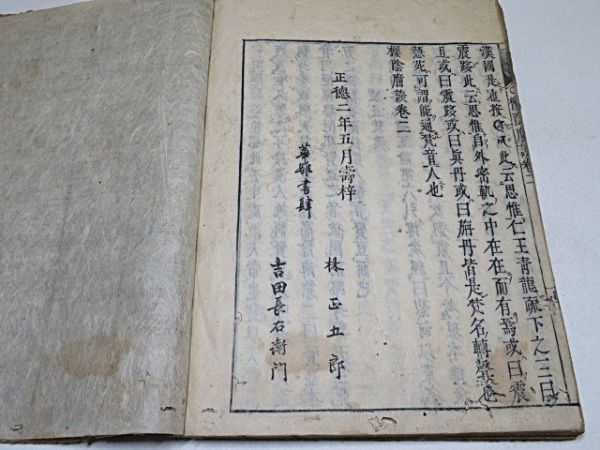 漢國是也按此云思惟仁王青龍疏下之三曰
震跢此云思惟自外密軌之中在在而有焉或曰震
旦或曰震跢或曰眞丹或曰旃丹皆是梵名轉聲也
慧苑可謂能通梵音人也
櫻陰腐談卷二
正德二年五月壽梓
華雒書肆
林正五郎
吉田長右衛門